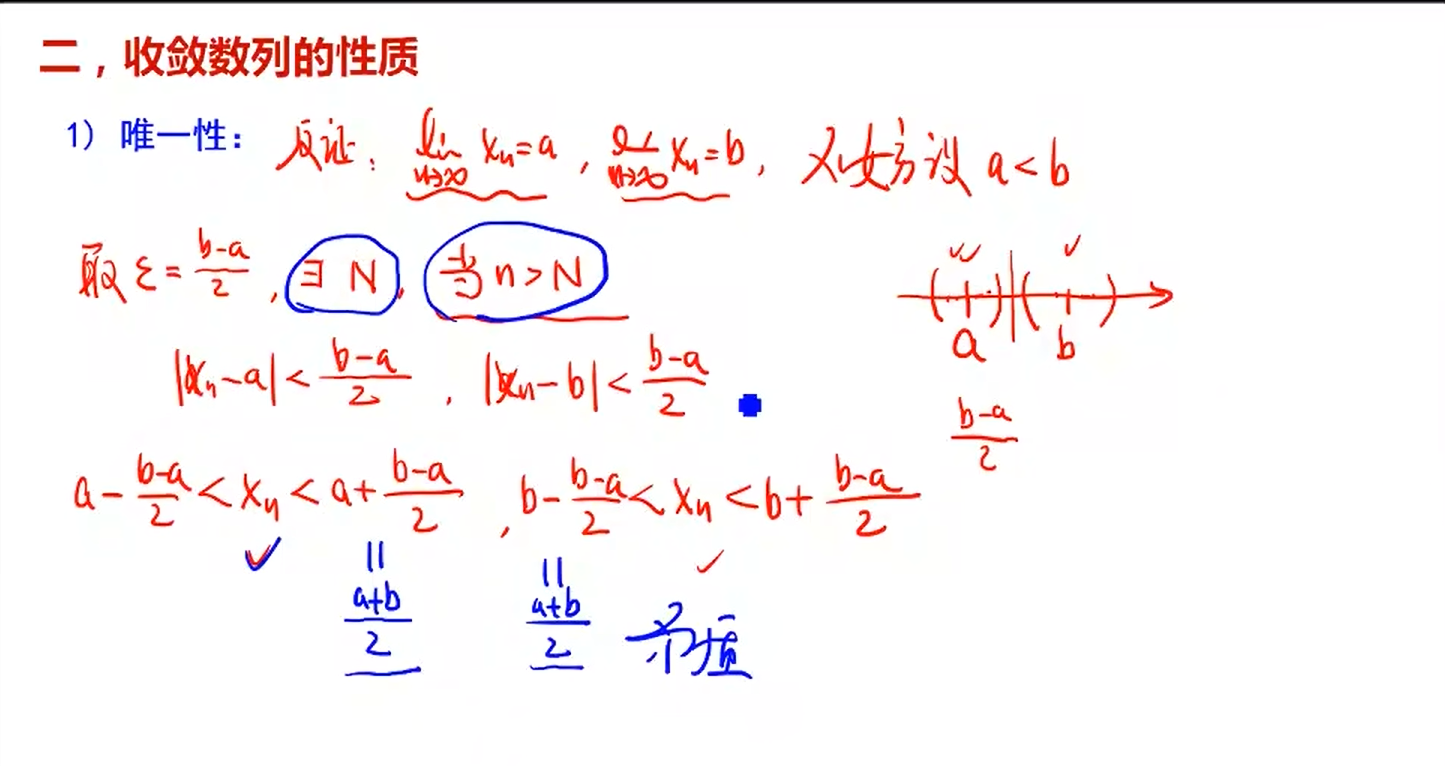 二，收敛数列的性质
1) 唯一性： 反证： lim n→∞ xn=a , lim n→∞ xn=b , 不妨设 a<b
取 ε= b-a/2 , ∃ N , 当 n>N
a b
|xn-a|< b-a/2 , |xn-b|< b-a/2
b-a/2
a- b-a/2 < xn < a+ b-a/2 , b- b-a/2 < xn < b+ b-a/2
|| a+b/2 || a+b/2 矛盾